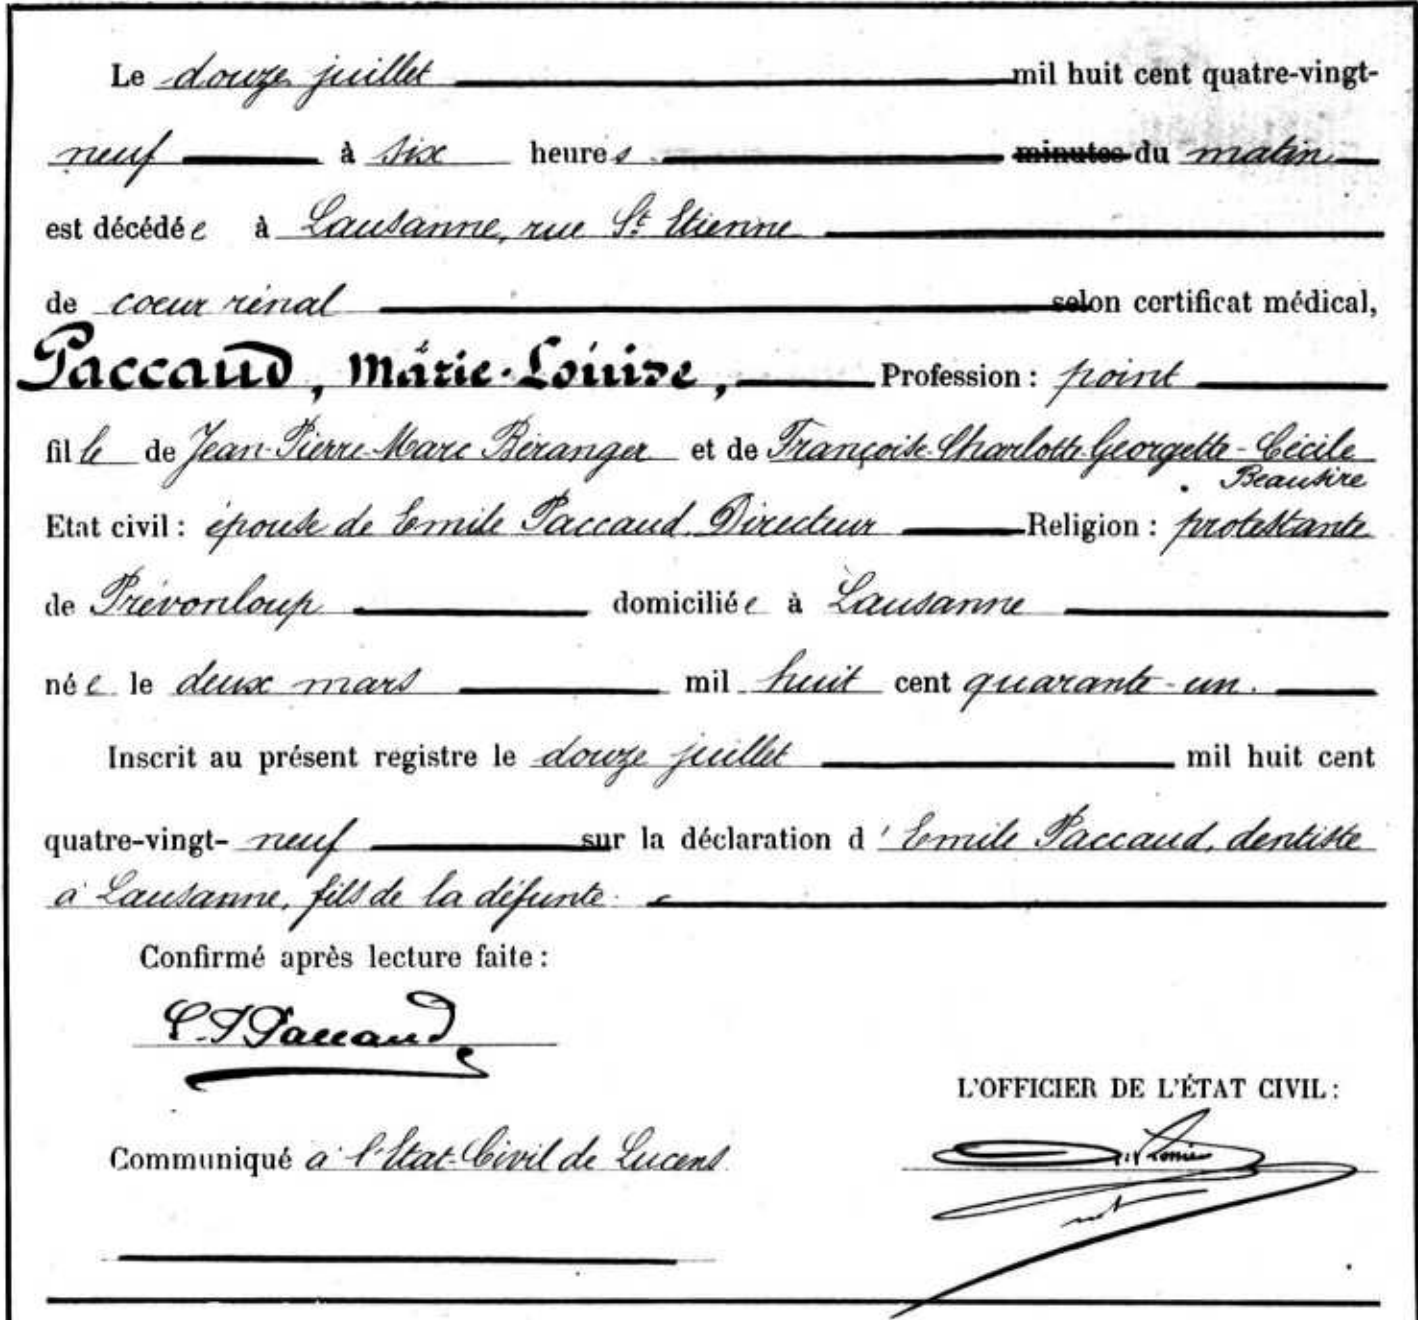 Le douze juillet mil huit cent quatre-vingt-
neuf à six heures minutes du matin
est décédée à Lausanne, rue St Etienne
de coeur rénal selon certificat médical,
Paccaud, Marie-Louise, Profession : point
fille de Jean-Pierre-Marc Béranger et de Françoise-Charlotte-Georgette-Cécile
Beausire
Etat civil : épouse de Emile Paccaud, Directeur Religion : protestante
de Prévonloup domiciliée à Lausanne
née le deux mars mil huit cent quarante-un.
Inscrit au présent registre le douze juillet mil huit cent
quatre-vingt- neuf sur la déclaration d'Emile Paccaud, dentiste
à Lausanne, fils de la défunte.
Confirmé après lecture faite :
Paccaud
L'OFFICIER DE L'ÉTAT CIVIL :
Communiqué à l'Etat-Civil de Lucens